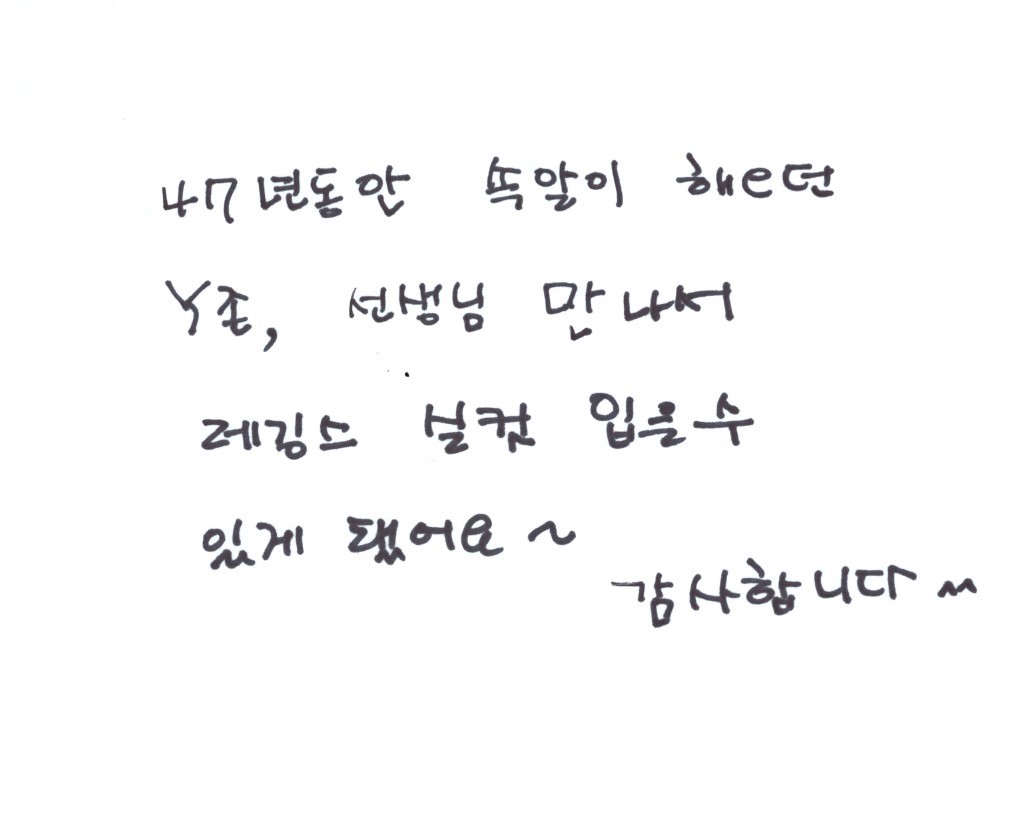 47년동안 쏙알이 해e던
Y존, 선생님 만나서
레깅스 실컷 입을수
있게 됐어요~
감사합니다 ^^